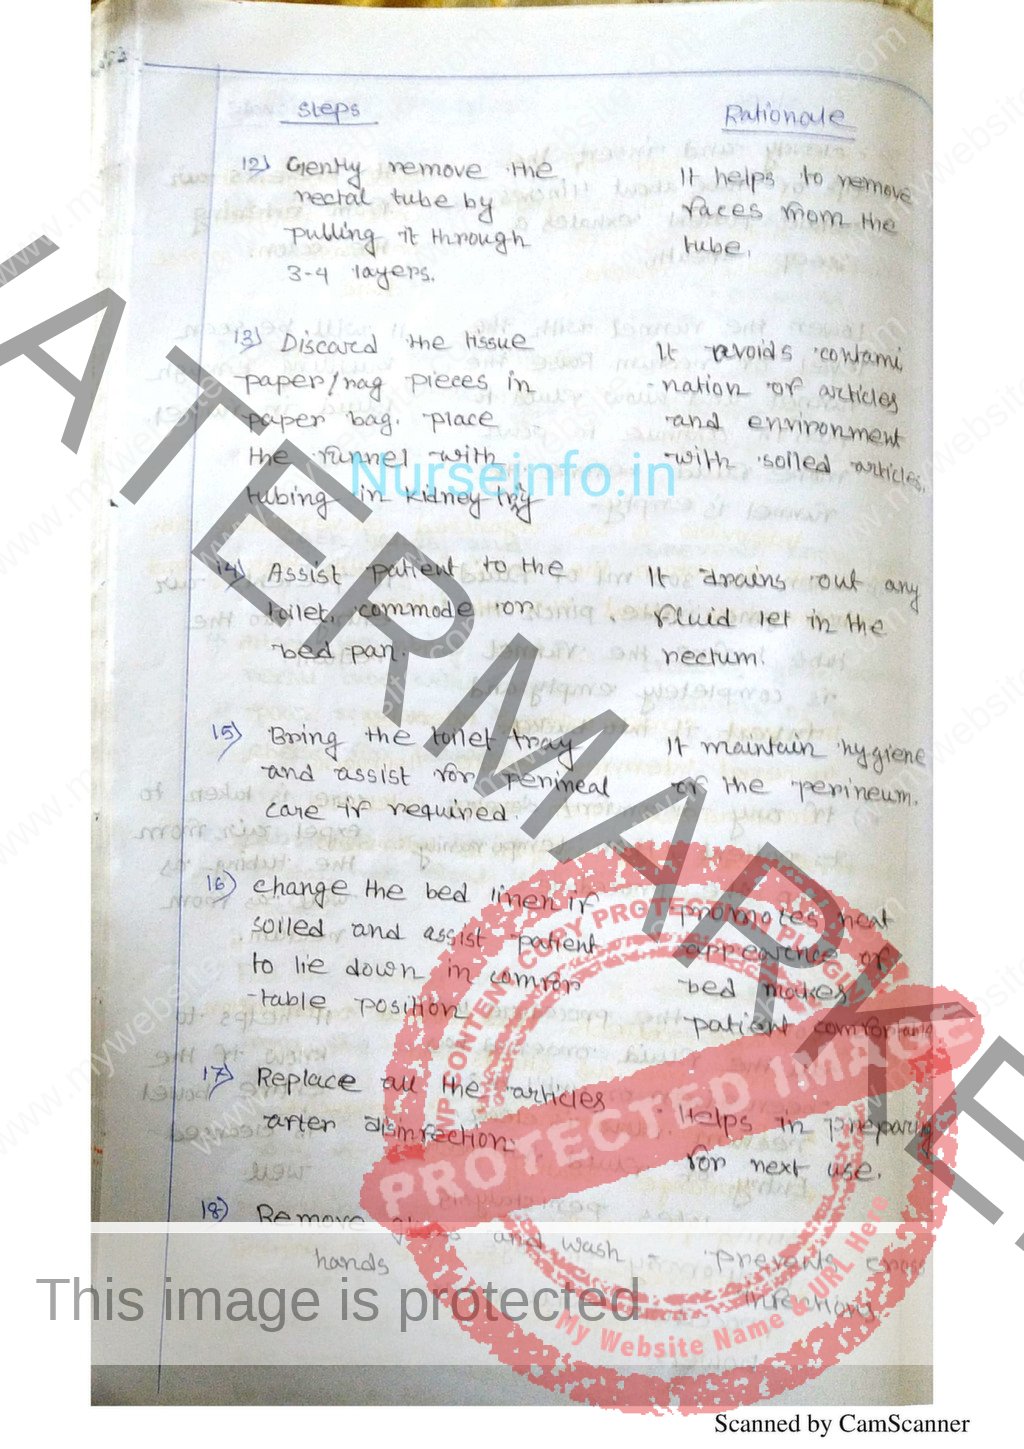 Steps
Rationale
12) Gently remove the
rectal tube by
pulling it through
3-4 layers.
It helps to remove
faces from the
tube.
13) Discard the tissue
paper/rag pieces in
paper bag. place
the funnel with
tubing in kidney tray
It avoids contami
nation of articles
and environment
with soiled articles.
14) Assist patient to the
toilet, commode or
bed pan.
It drains out any
fluid let in the
rectum.
15) Bring the toilet tray
and assist for perineal
care if required.
It maintain hygiene
of the perineum.
16) change the bed linen if
soiled and assist patient
to lie down in comfor
-table position
promotes neat
appearance of
bed makes
patient comfortable
17) Replace all the articles
after disinfection
Helps in preparing
for next use.
18) Remove gloves and wash
hands
prevents cross
infections
WATERMARKED
Nurseinfo.in
WP CONTENT COPY PROTECTION PLUGIN
PROTECTED IMAGE
My Website Name & URL Here
This image is protected
www.mywebsite.com
Scanned by CamScanner